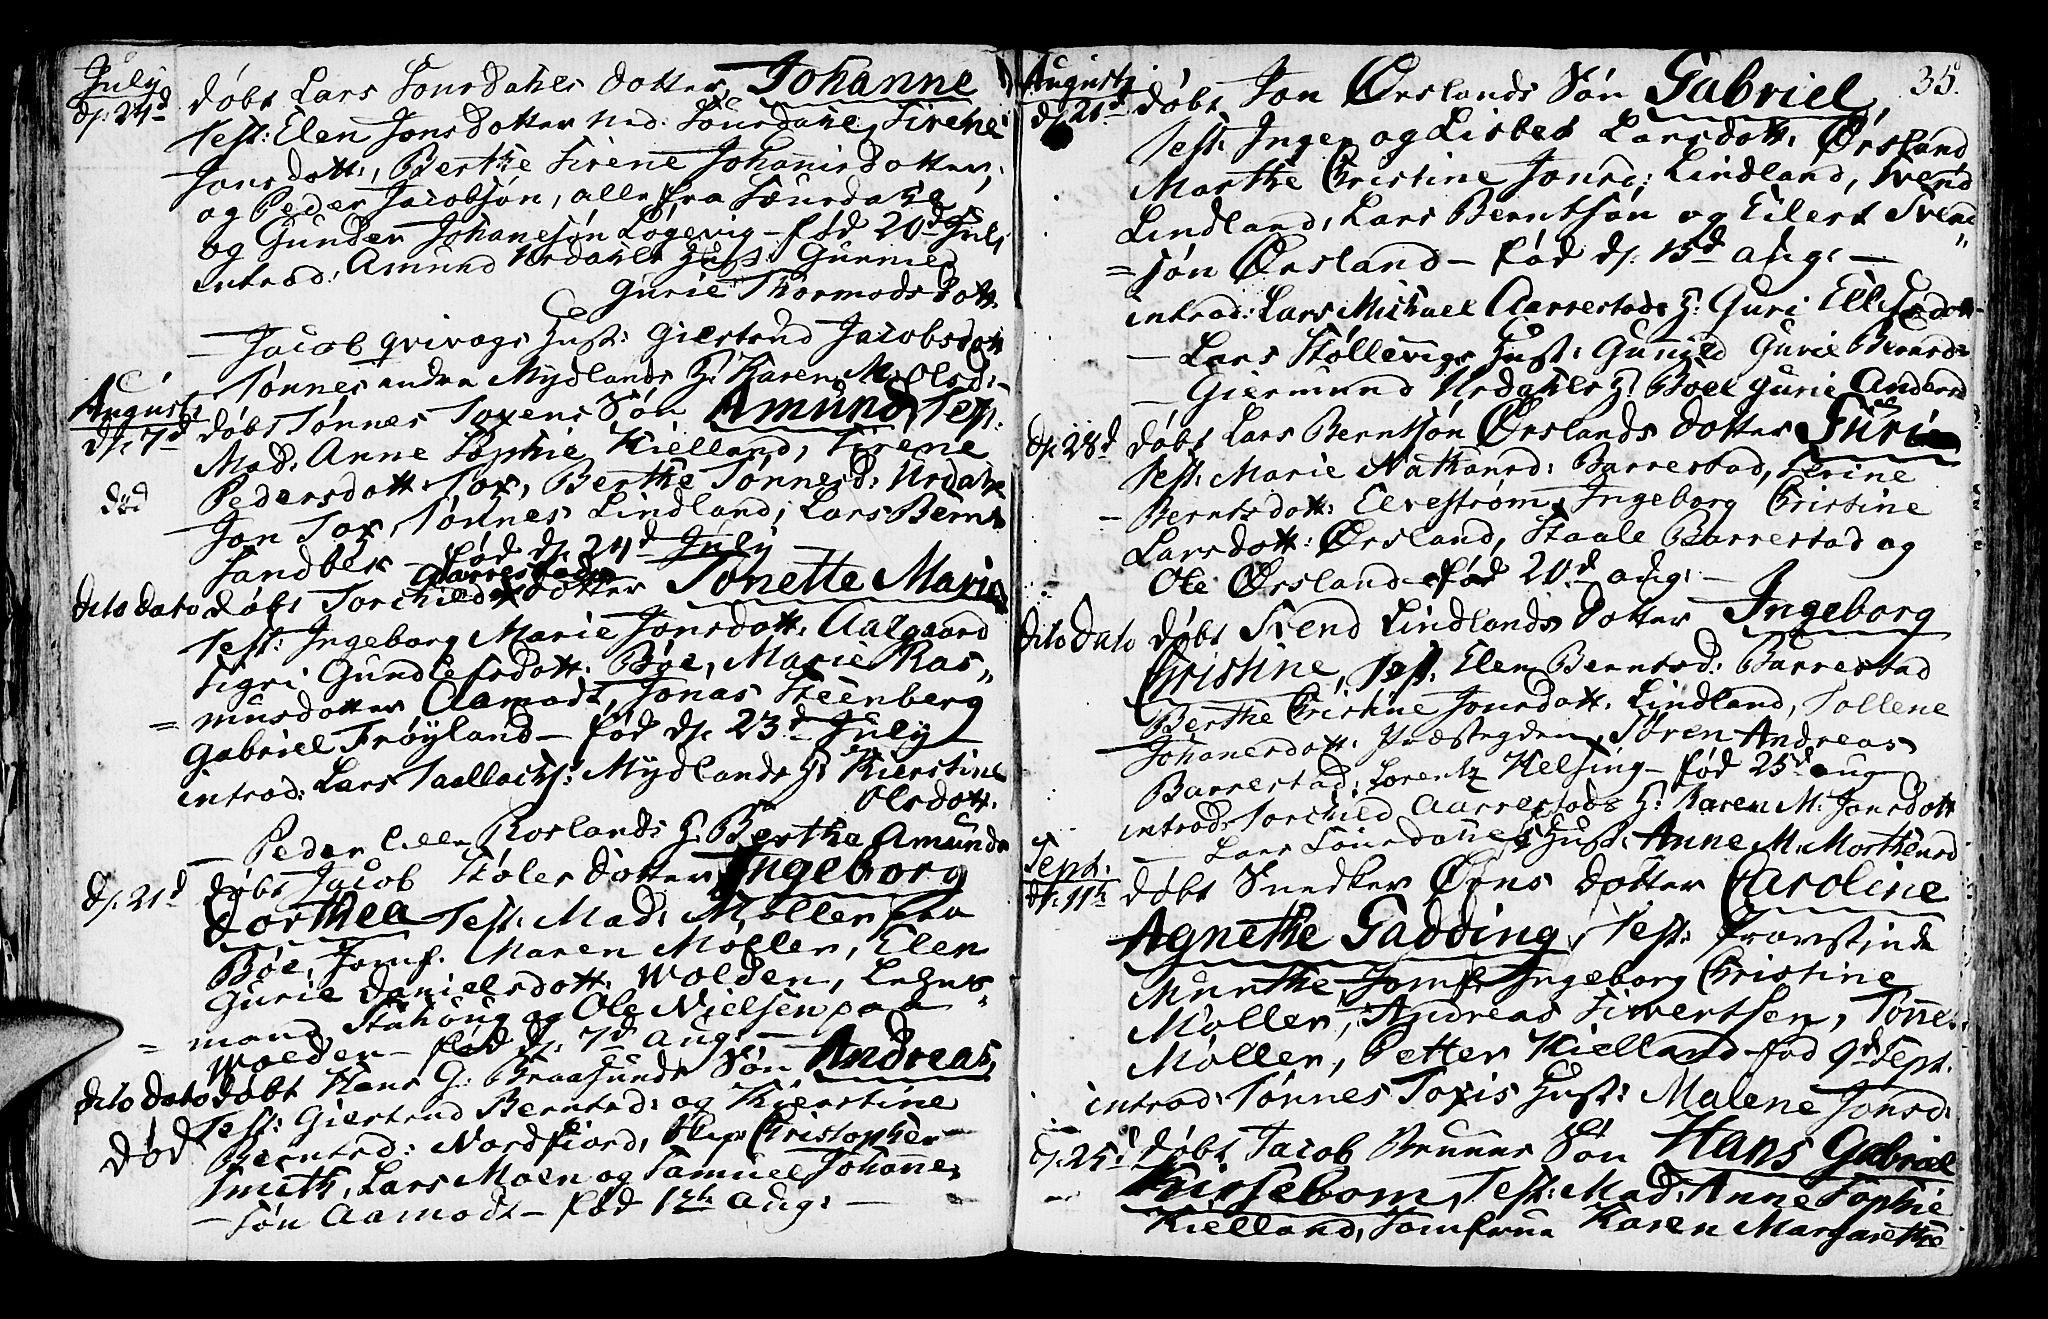 July
d: 24d døbt Lars Sourdahls dotter Johanne
Test: Elen Jonsdotter Med: Sourdahl, Sirene
Jonsdott:, Berthe Sirene Johannisdotter,
og Peder Jacobsøn, alle fra Sourdahl
og Gunder Johanesøn Løgevig - fød 20d July
introd: Amund Urdahls Hust: Gunild
Gurie Thormodsdott
- Jacob qvivogs Hust: Giertrud Jacobsdott
- Tønnes andra Mydlands H: Karen M: Olsd:
August
d: 7d døbt Tønnes Toxens Søn Amund, Test:
Mad: Anne Sophie Kielland, Sirene
død Pedersdott: Tox, Berthe Tønnesd: Urdahl
Jon Tox, Tønnes Lindland, Lars Bernt
Sandbek - fød d: 24d July
Aarrestads
dito dato døbt Torchilds dotter Tonette Marie
Test: Ingeborg Marie Jonsdott: Aalgaard
Sigri Gundlefsdott: Bøe, Marie Ras„
= musdotter Aamodt, Jonas Steenberg
Gabriel Frøyland - fød d: 23d July
introd: Lars Taallachs: Mydlands H: Kierstine
Olsdott:
- Peder Roslands H: Berthe Amunds
d: 21d døbt Jacob Støles dotter Ingeborg
Dorthea Test: Mad: Møller fra
Bøe, Jomf. Maren Møller, Elen
Gurie Danielsdott: Wolden, Lehns„
= mand Stahoug og Ole Nielsen paa
Wolden - fød d: 7d Aug: -
dito dato døbt Hans G: Braasunds Søn Andreas,
Test: Giertrud Berntsd: og Kierstine
død Berntsd: Nordfiord, Christopher
Smith, Lars Moen og Samuel Johanne
- søn Aamodt - fød 12te Aug: -
Augusti 35.
d: 21d døbt Jon Ørslands Søn Gabriel,
Test: Inger og Lisbet Larsdott: Ørsland
Marthe Christine Jonsd: Lindland, Svend
Lindland, Lars Berntsøn og Eilert Svend„
= søn Ørsland - fød d: 15d Aug: -
introd: Lars Michael Aarrestads H: Guri Ellifsdott
- Lars Støllevigs Hust: Gunild Gurie Bernsd:
- Giermund Urdahls H: Boel Gurie Andersd
d: 28d døbt Lars Berntsøn Ørslands dotter Siri
Test: Marie Nathansd: Barrestad, Serine
- Berntsdott: Elvestrøm, Ingeborg Christine
Larsdott: Ørsland, Staale Barrestad og
Ole Ørsland - fød 20d Aug: -
dito dato døbt Svend Lindlands dotter Ingeborg
Christine, Test: Elen Berntsd: Barrestad
Berthe Christine Jonsdott: Lindland, Tollene
Johanesdott: Præstegden, Søren Andreas
Barrestad, Lorentz Helsing - fød 25d Aug
introd: Torchild Aarrestads H: Karen M: Jonsdott
- Lars Sourdahls Hust: Anne M: Morthensd
Sept:
d: 11te døbt Snedker Ørns dotter Caroline
Agnethe Gadding, Test: Provstinde
Munthe, Jomf: Ingeborg Christine
Møller, Andreas Sivertsen, Tønnes
Møller, Petter Kielland - fød 9d Sept.
introd: Tønnes Toxis Hust: Malene Jonsd:
d: 25d døbt Jacob Bruuns Søn Hans Gabriel
Kirsebom, Test: Mad: Anne Sophie
Kielland, Jomfrue Karen Margarethe